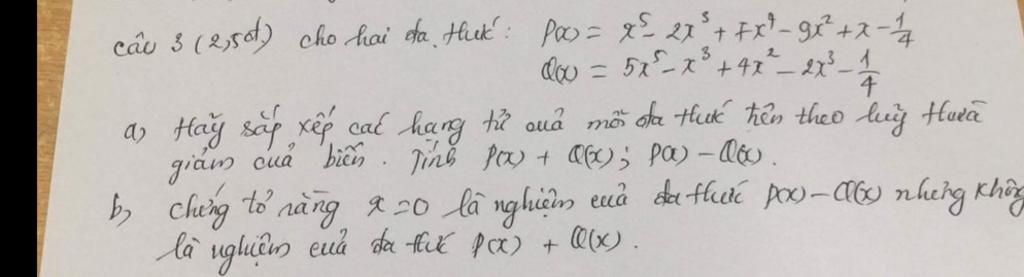 câu 3 (2,5đ) cho hai đa thức: P(x) = x⁵ - 2x³ + 7x⁴ - 9x² + x - 1/4
Q(x) = 5x⁵ - x³ + 4x² - 2x³ - 1/4
a) Hãy sắp xếp các hạng tử của mỗi đa thức trên theo luỹ thừa
giảm của biến. Tính P(x) + Q(x); P(x) - Q(x).
b) chứng tỏ rằng x = 0 là nghiệm của đa thức P(x) - Q(x) nhưng không
là nghiệm của đa thức P(x) + Q(x).